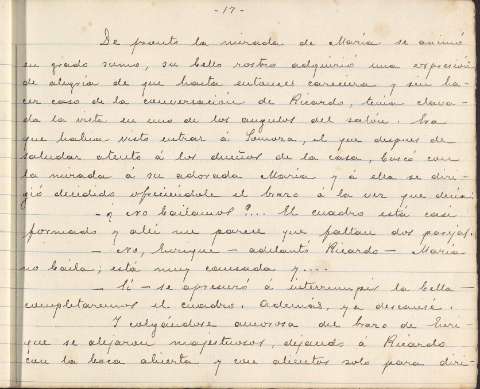 -17-
De pronto la mirada de María se animó
en grado sumo, su bello rostro adquirió una expresión
de alegría de que hasta entonces careciera y sin ha-
cer caso de la conversación de Ricardo, tenía clava-
da la vista en uno de los angulos del salón. Era
que había visto entrar á Zamora, el que despues de
saludar atento á los dueños de la casa, buscó con
la mirada á su adorada María y á ella se diri-
gió decidido ofreciéndole el brazo á la vez que decía:
- ¿No bailamos?... El cuadro está casi
formado y aun me parece que faltan dos parejas.
- No, Enrique - adelantó Ricardo - María
no baila; está muy cansada y....
- Sí - se apresuró á interrumpir la bella -
completaremos el cuadro. Además, ya descansé.
Y colgándose amorosa del brazo de Enri-
que se alejaron majestuosos, dejando á Ricardo
con la boca abierta y con alientos solo para diri-